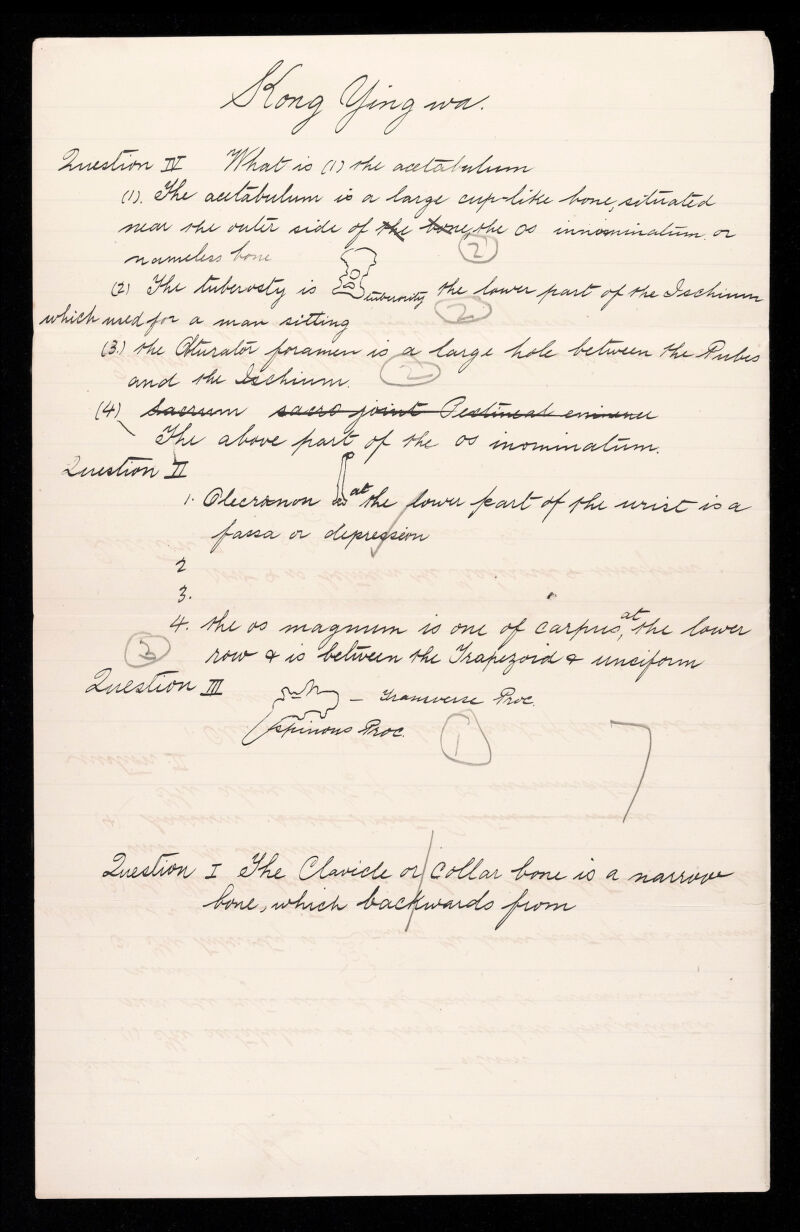 Kong Ying wa.
Question IV What is (1) the acetabulum
(1). The acetabulum is a large cup-like bone, situated
near the outer side of the bone, the os innominatum or
nameless bone
2
(2) The tuberosty is tuberosity the lower part of the Ischium
which used for a man sitting
2
(3.) the Oturator foramen is a large hole between the Pubes
and the Ischium.
2
(4) Sacrum sacro joint Pectineal eminence
The above part of the os inominatum.
Question II
1. Olecranon at the lower part of the wrist is a
fassa or depression
2
3.
4. the os magnum is one of carpus, at the lower
row & is between the Trapezoid & unciform
Question III — Transverse Proc.
spinous Proc.
1
7
Question I The Clavicle or collar bone is a narrow
bone, which backwards from